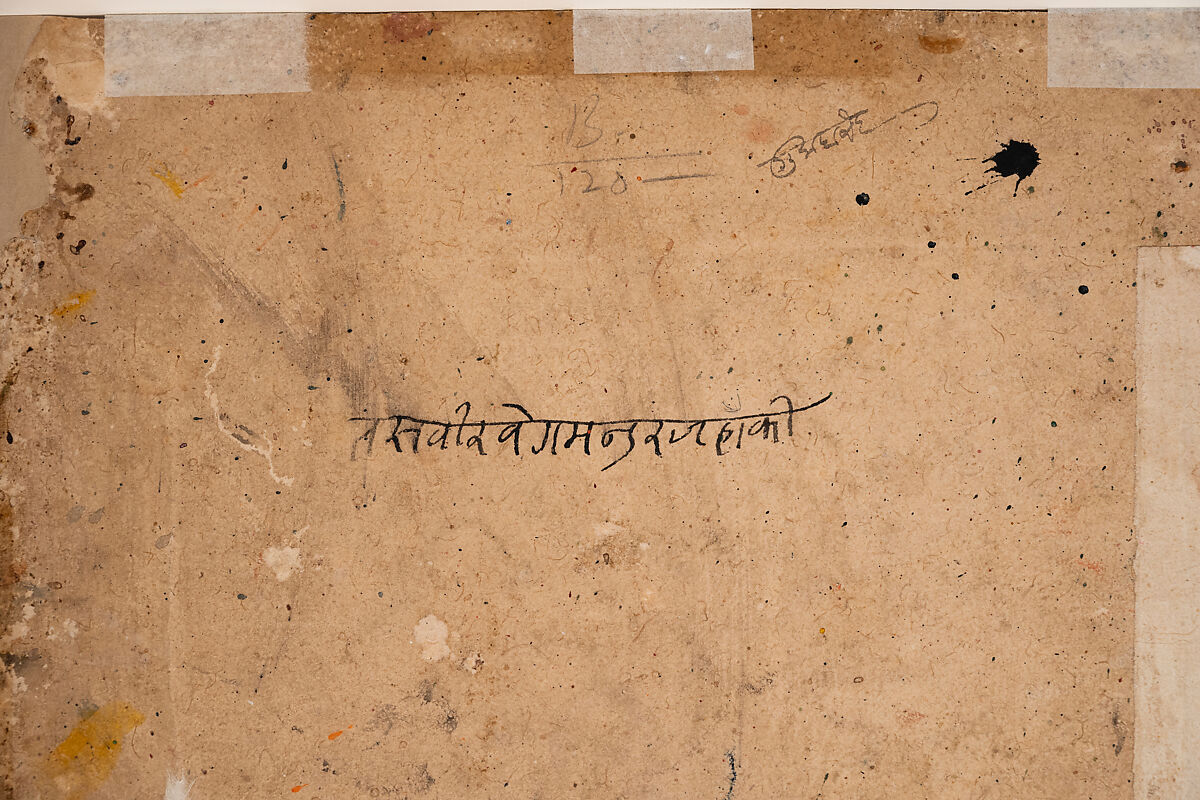 B
120
तसवीर वेगम नुरजहां की